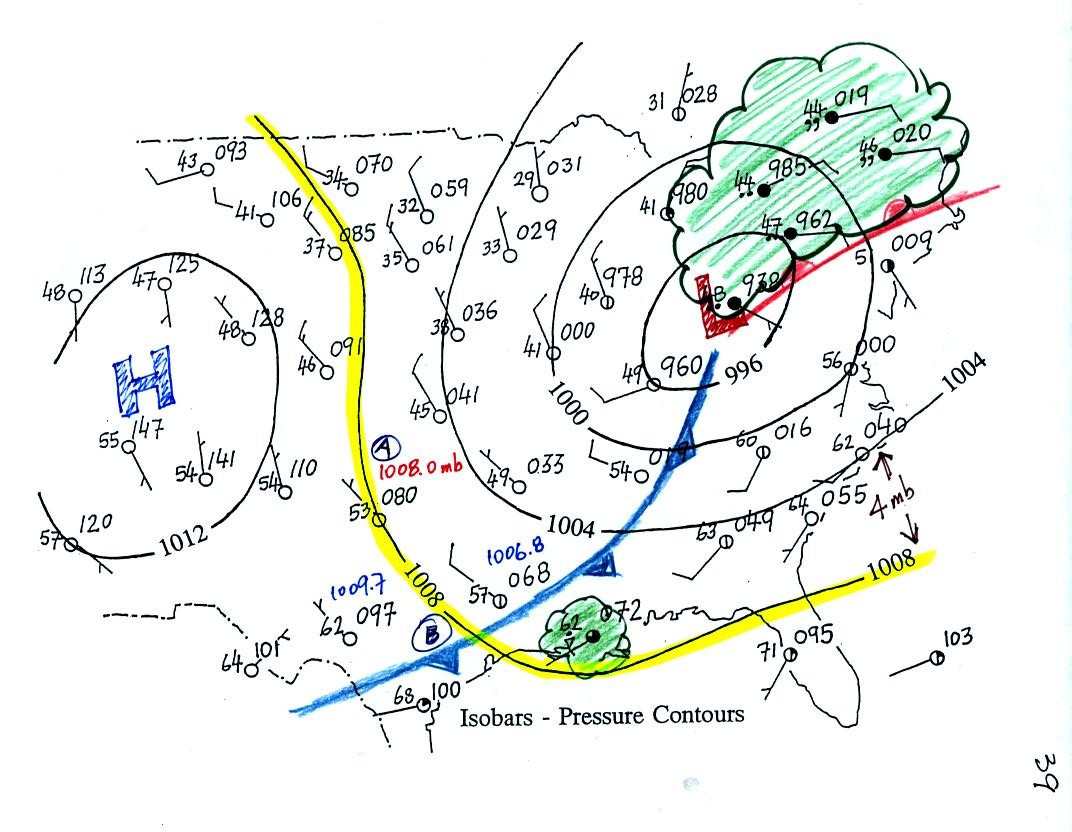 31 028
44 019
,,
46 020
,,
43 093
34 070
29 031
44 985
41 980
32 059
41 106
47 962
37 085
35 061
33 029
009
48 113
47 125
40 978
938
48 128
38 036
46 091
41 000
49 960
996
56 000
H
L
1000
1004
45 041
55 147
A
1008.0 mb
54 141
54 110
60 016
62 040
54
49 033
4 mb
53 080
64 055
57 120
1012
1004
63 049
1006.8
57 068
1008
1008
1009.7
62 097
62 072
B
64 101
71 095
103
68 100
Isobars - Pressure Contours
39